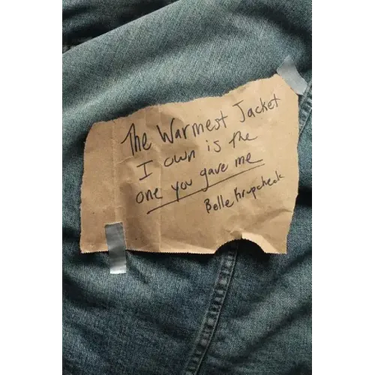 The Warmest Jacket
I own is the
one you gave me
Belle Krupcheck